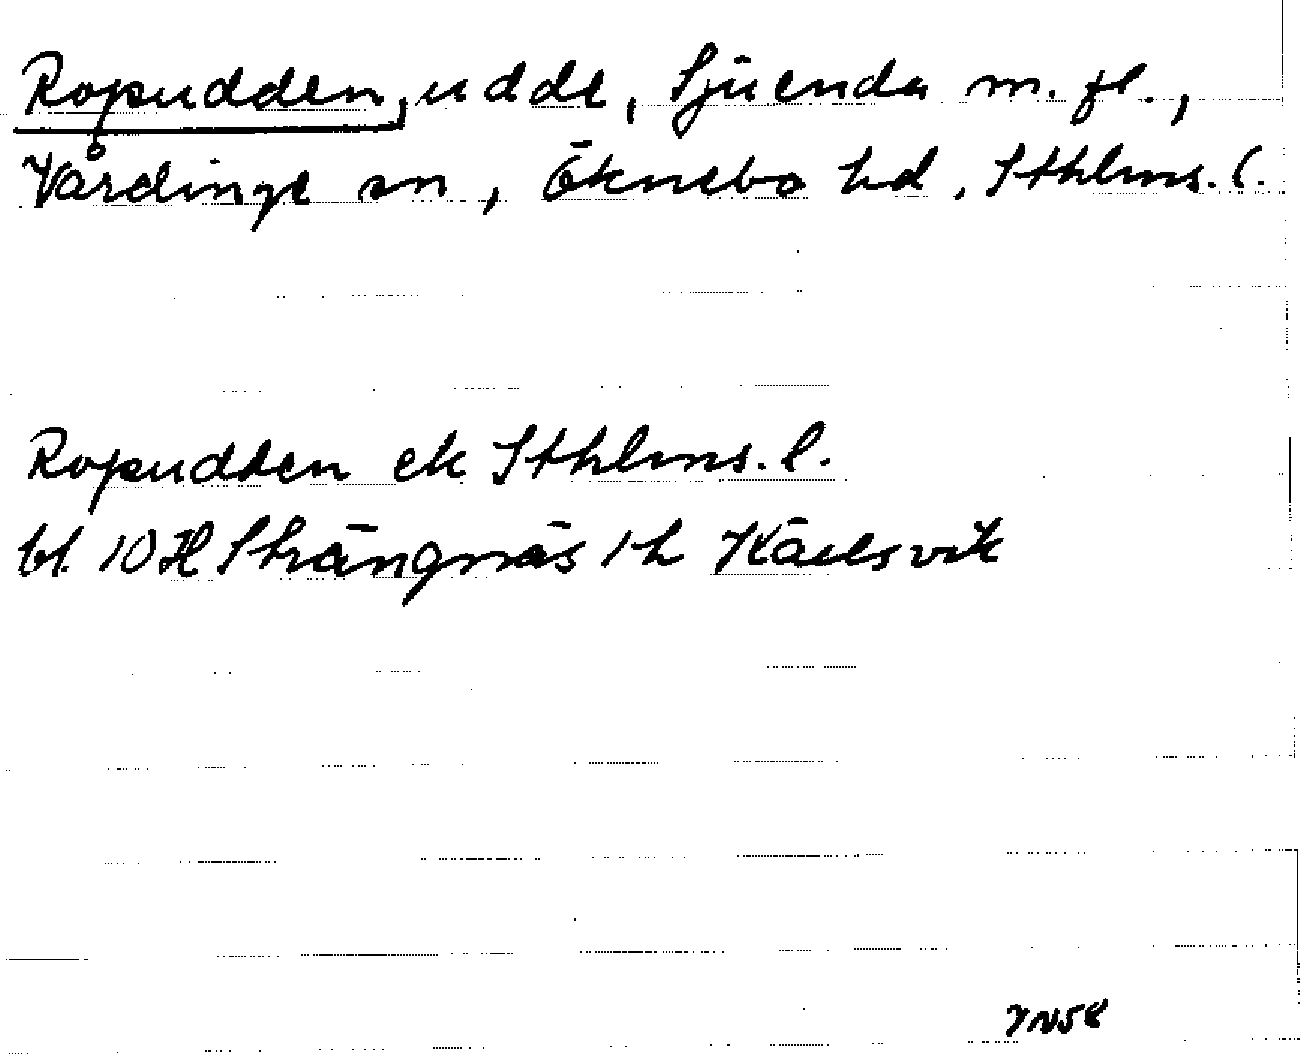 Ropudden, udde, Sjuenda m. fl.,
Vårdinge sn, Öknebo hd, Sthlms. l.
Ropudden ek Sthlms. l.
bl. 10 H Strängnäs 1 h